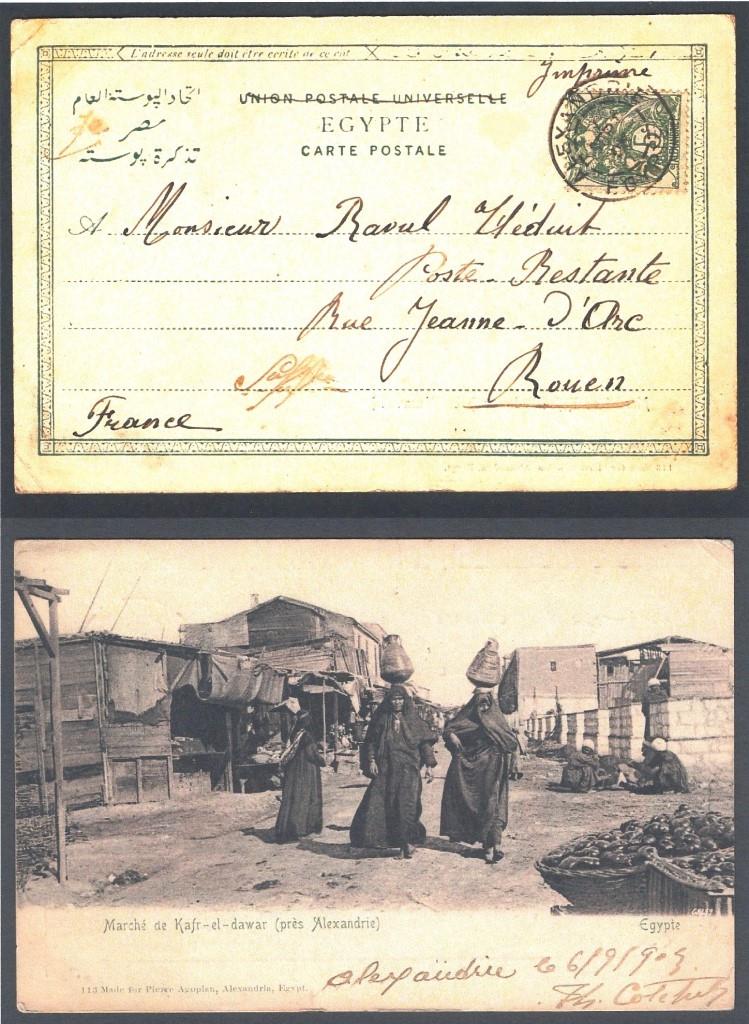 L'adresse seule doit être écrite de ce côté
Imprimé
اتحاد البوستة العام
مصر
تذكرة بوسته
UNION POSTALE UNIVERSELLE
EGYPTE
CARTE POSTALE
5
A Monsieur Raoul
Poste - Restante
Rue Jeanne - D'Arc
Rouen
France
Marché de Kafr-el-dawar (près Alexandrie)
Egypte
113 Made for Pierre Agopian, Alexandria, Egypt.
Alexandrie le 6/9/903